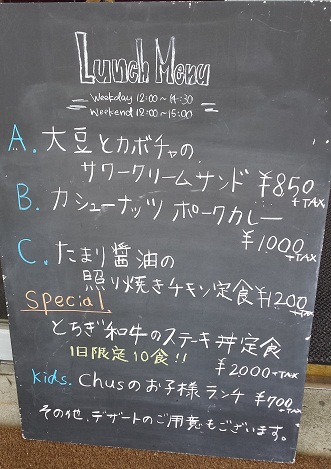 Lunch Menu
Weekday 12:00〜14:30
Weekend 12:00〜15:00
A. 大豆とカボチャの
サワークリームサンド ¥850
+TAX
B. カシューナッツ ポークカレー
¥1000
+TAX
C. たまり醤油の
照り焼きチキン定食 ¥1200
+TAX
Special
とちぎ和牛のステーキ丼定食
1日限定10食!!
¥2000+TAX
Kids. Chusのお子様ランチ ¥700
+TAX
その他、デザートのご用意もございます。